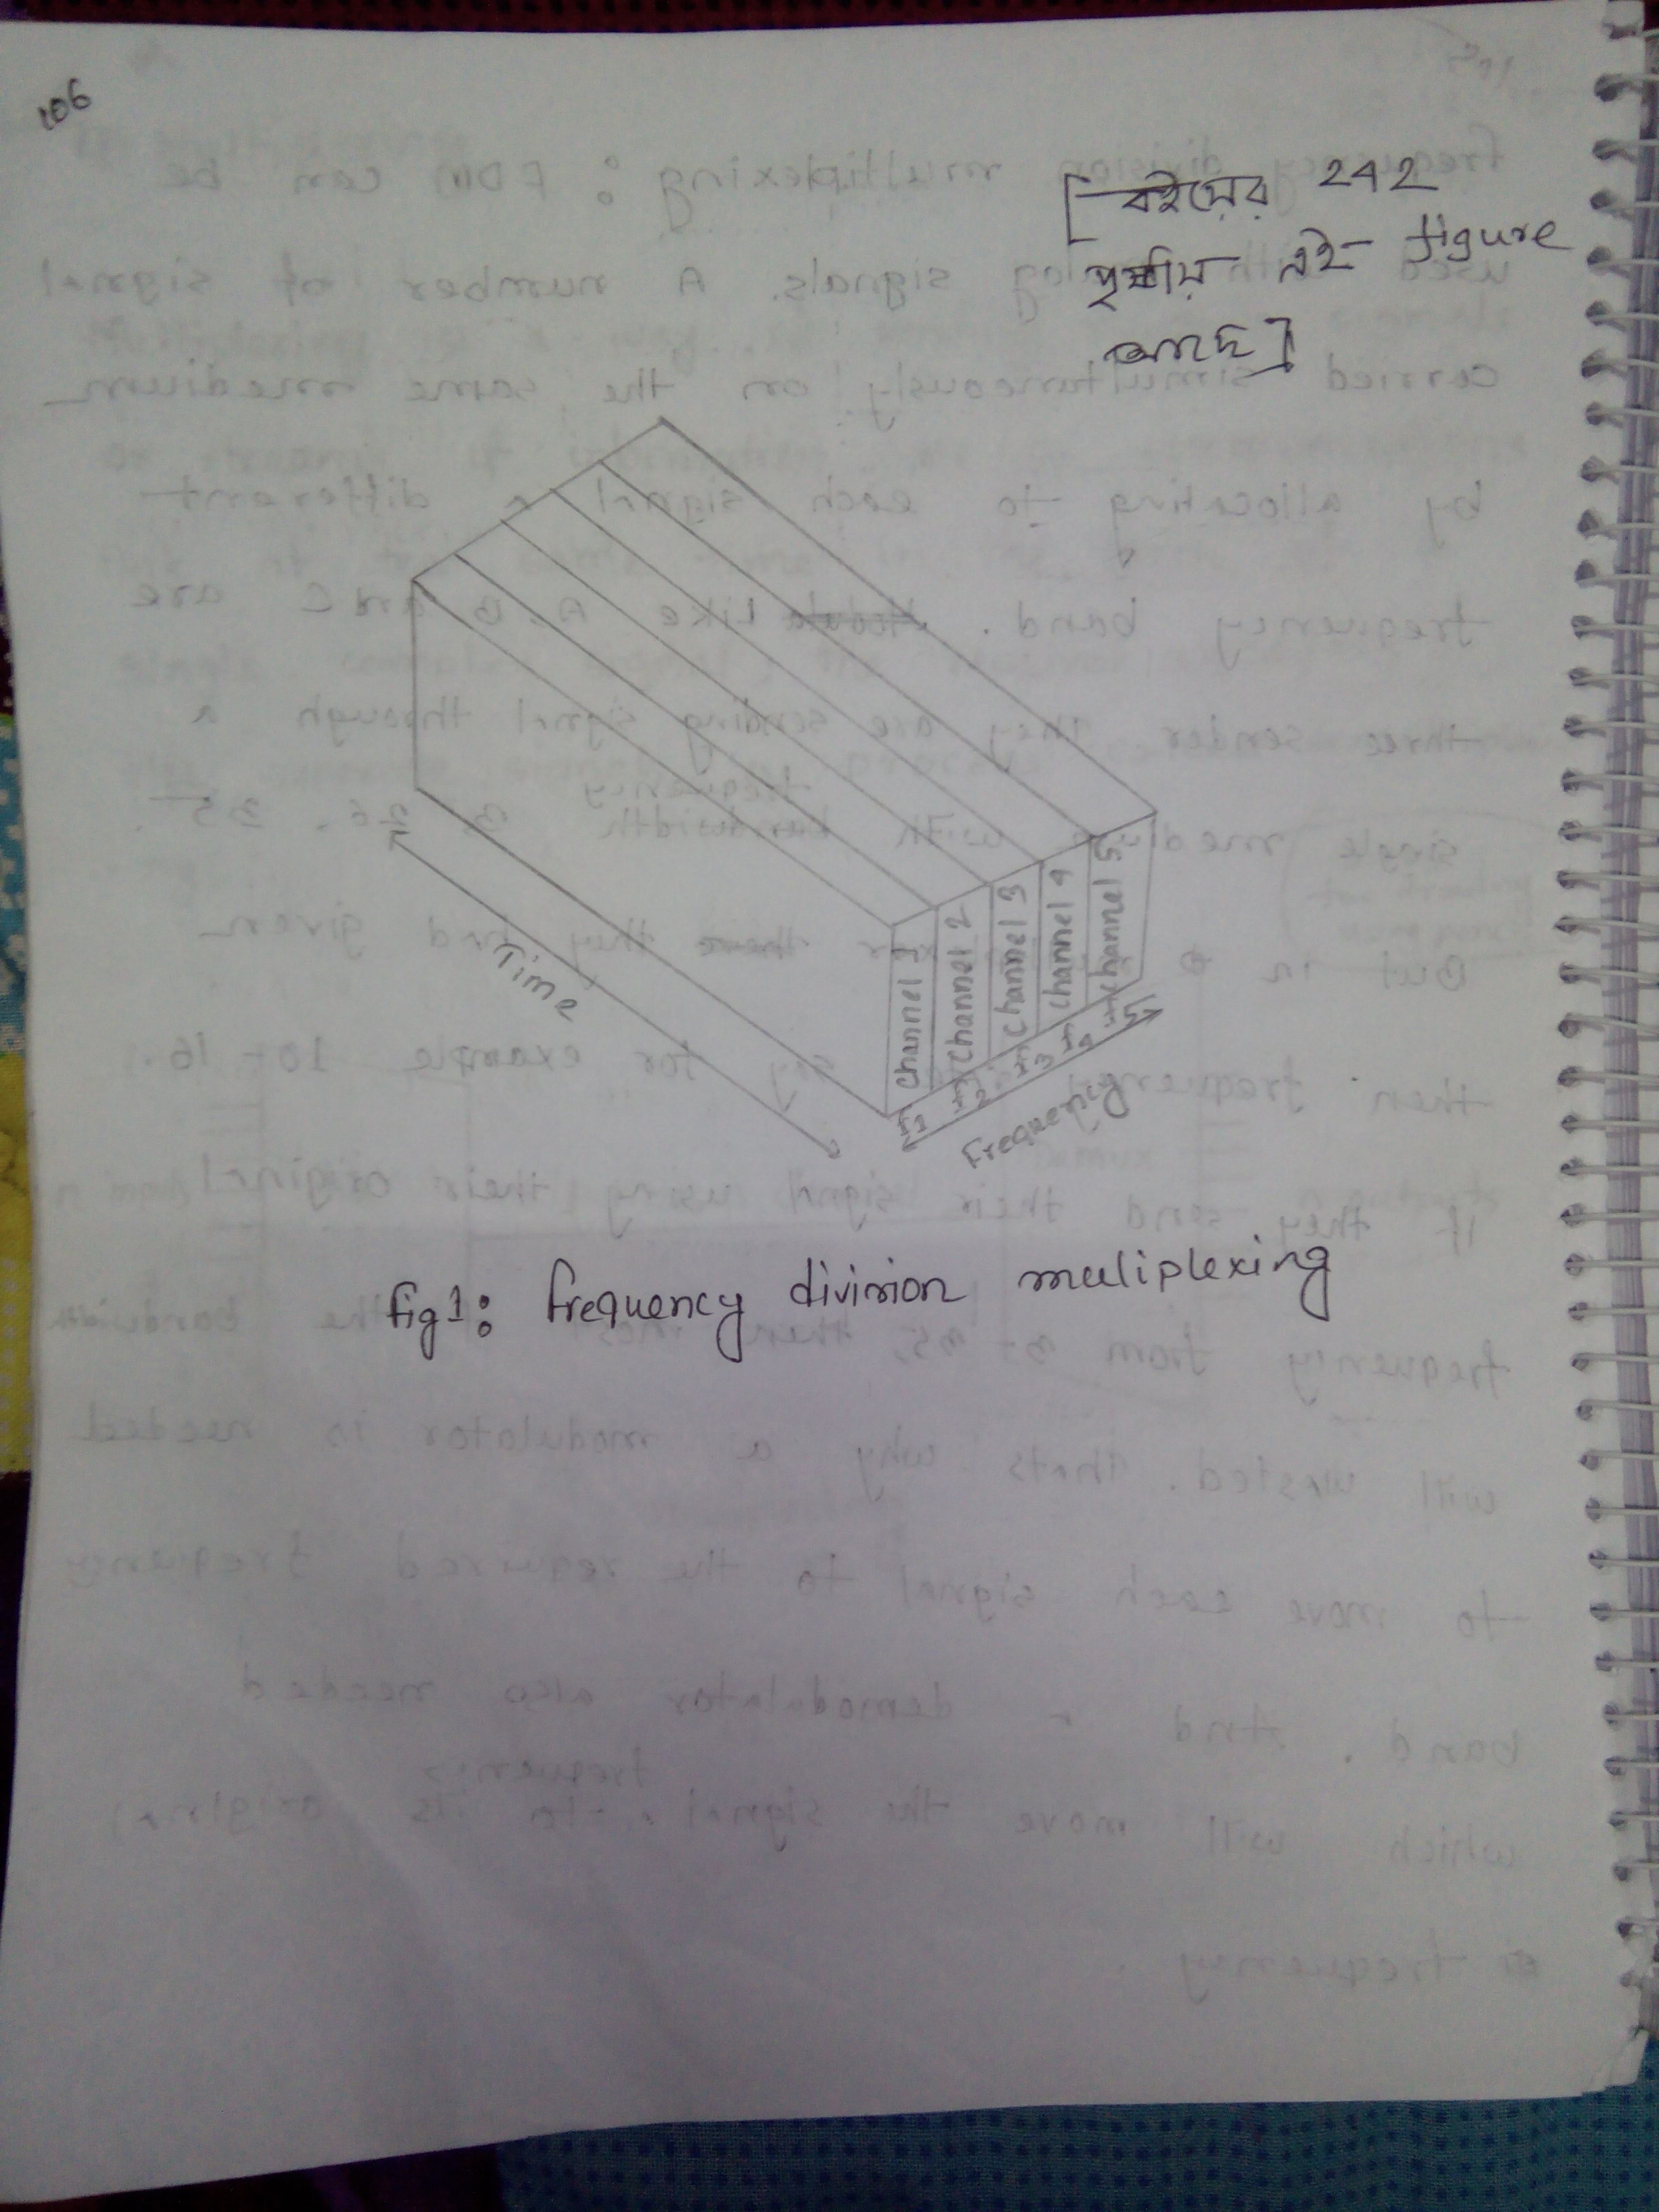 106
[বইয়ের 242
পৃষ্ঠায় এই figure
আছে]
Time
channel 1
channel 2
channel 3
channel 4
channel 5
f1
f2
f3
f4
f5
Frequency
fig 1: frequency division muliplexing